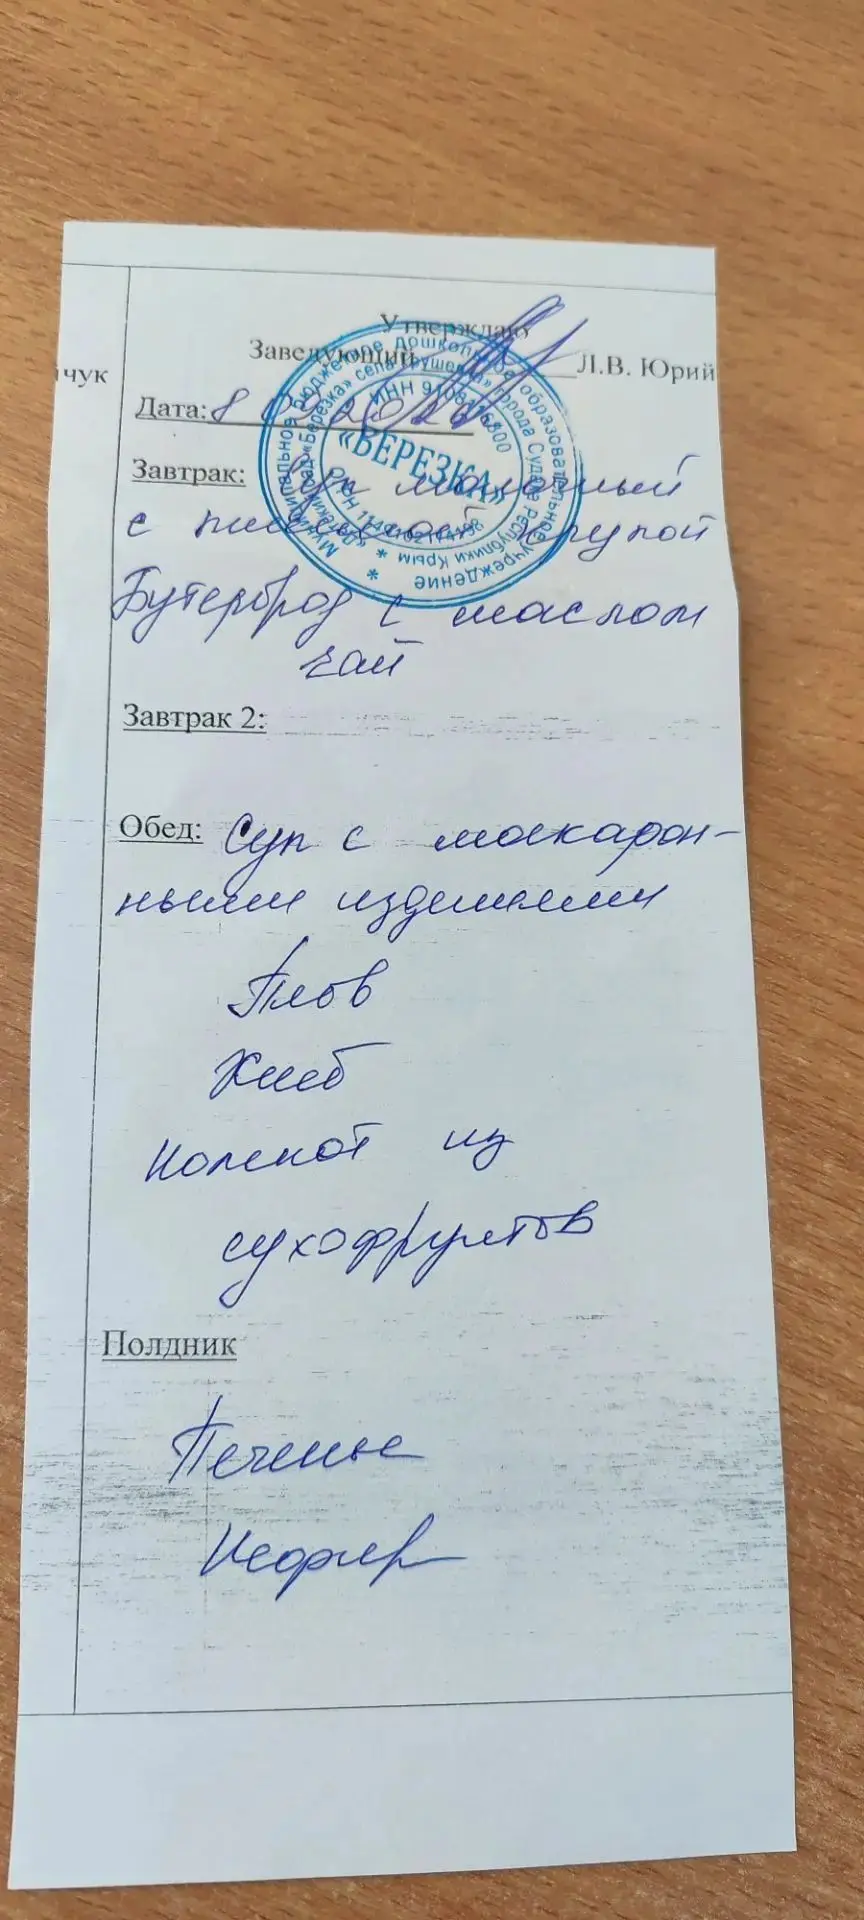 Утверждаю
Заведующий Л.В. Юрий
йчук
Дата: 8
Завтрак: Суп молочный
с пшеничной крупой
Бутерброд с маслом
чай
Завтрак 2:
Обед: Суп с макарон-
ными изделиями
Плов
Хлеб
Компот из
сухофруктов
Полдник
Печенье
Кефир
Муниципальное бюджетное дошкольное образовательное учреждение
«Детский сад «Березка» села Грушевка» города Судака Республики Крым
ИНН
ОГРН
«БЕРЕЗКА»